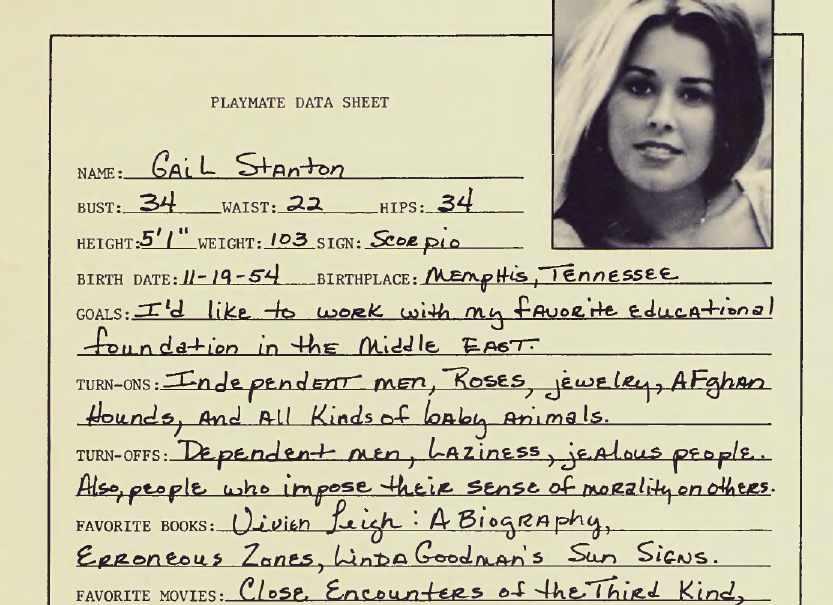 PLAYMATE DATA SHEET
NAME: Gail Stanton
BUST: 34 WAIST: 22 HIPS: 34
HEIGHT: 5'1" WEIGHT: 103 SIGN: Scorpio
BIRTH DATE: 11-19-54 BIRTHPLACE: Memphis, Tennessee
GOALS: I'd like to work with my favorite educational
foundation in the Middle East.
TURN-ONS: Independent men, Roses, jewelry, Afghan
Hounds, and all kinds of baby animals.
TURN-OFFS: Dependent men, Laziness, jealous people.
Also, people who impose their sense of morality on others.
FAVORITE BOOKS: Vivien Leigh: A Biography,
Erroneous Zones, Linda Goodman's Sun Signs.
FAVORITE MOVIES: Close Encounters of the Third Kind,